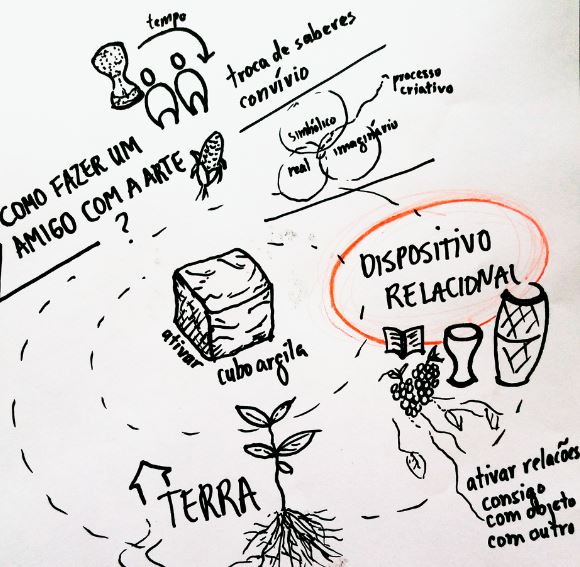 tempo
troca de saberes
convívio
processo
criativo
simbólico
real
imaginário
COMO FAZER UM
AMIGO COM A ARTE
?
DISPOSITIVO
RELACIONAL
ativar
cubo argila
TERRA
ativar relações
consigo
com objeto
com outro